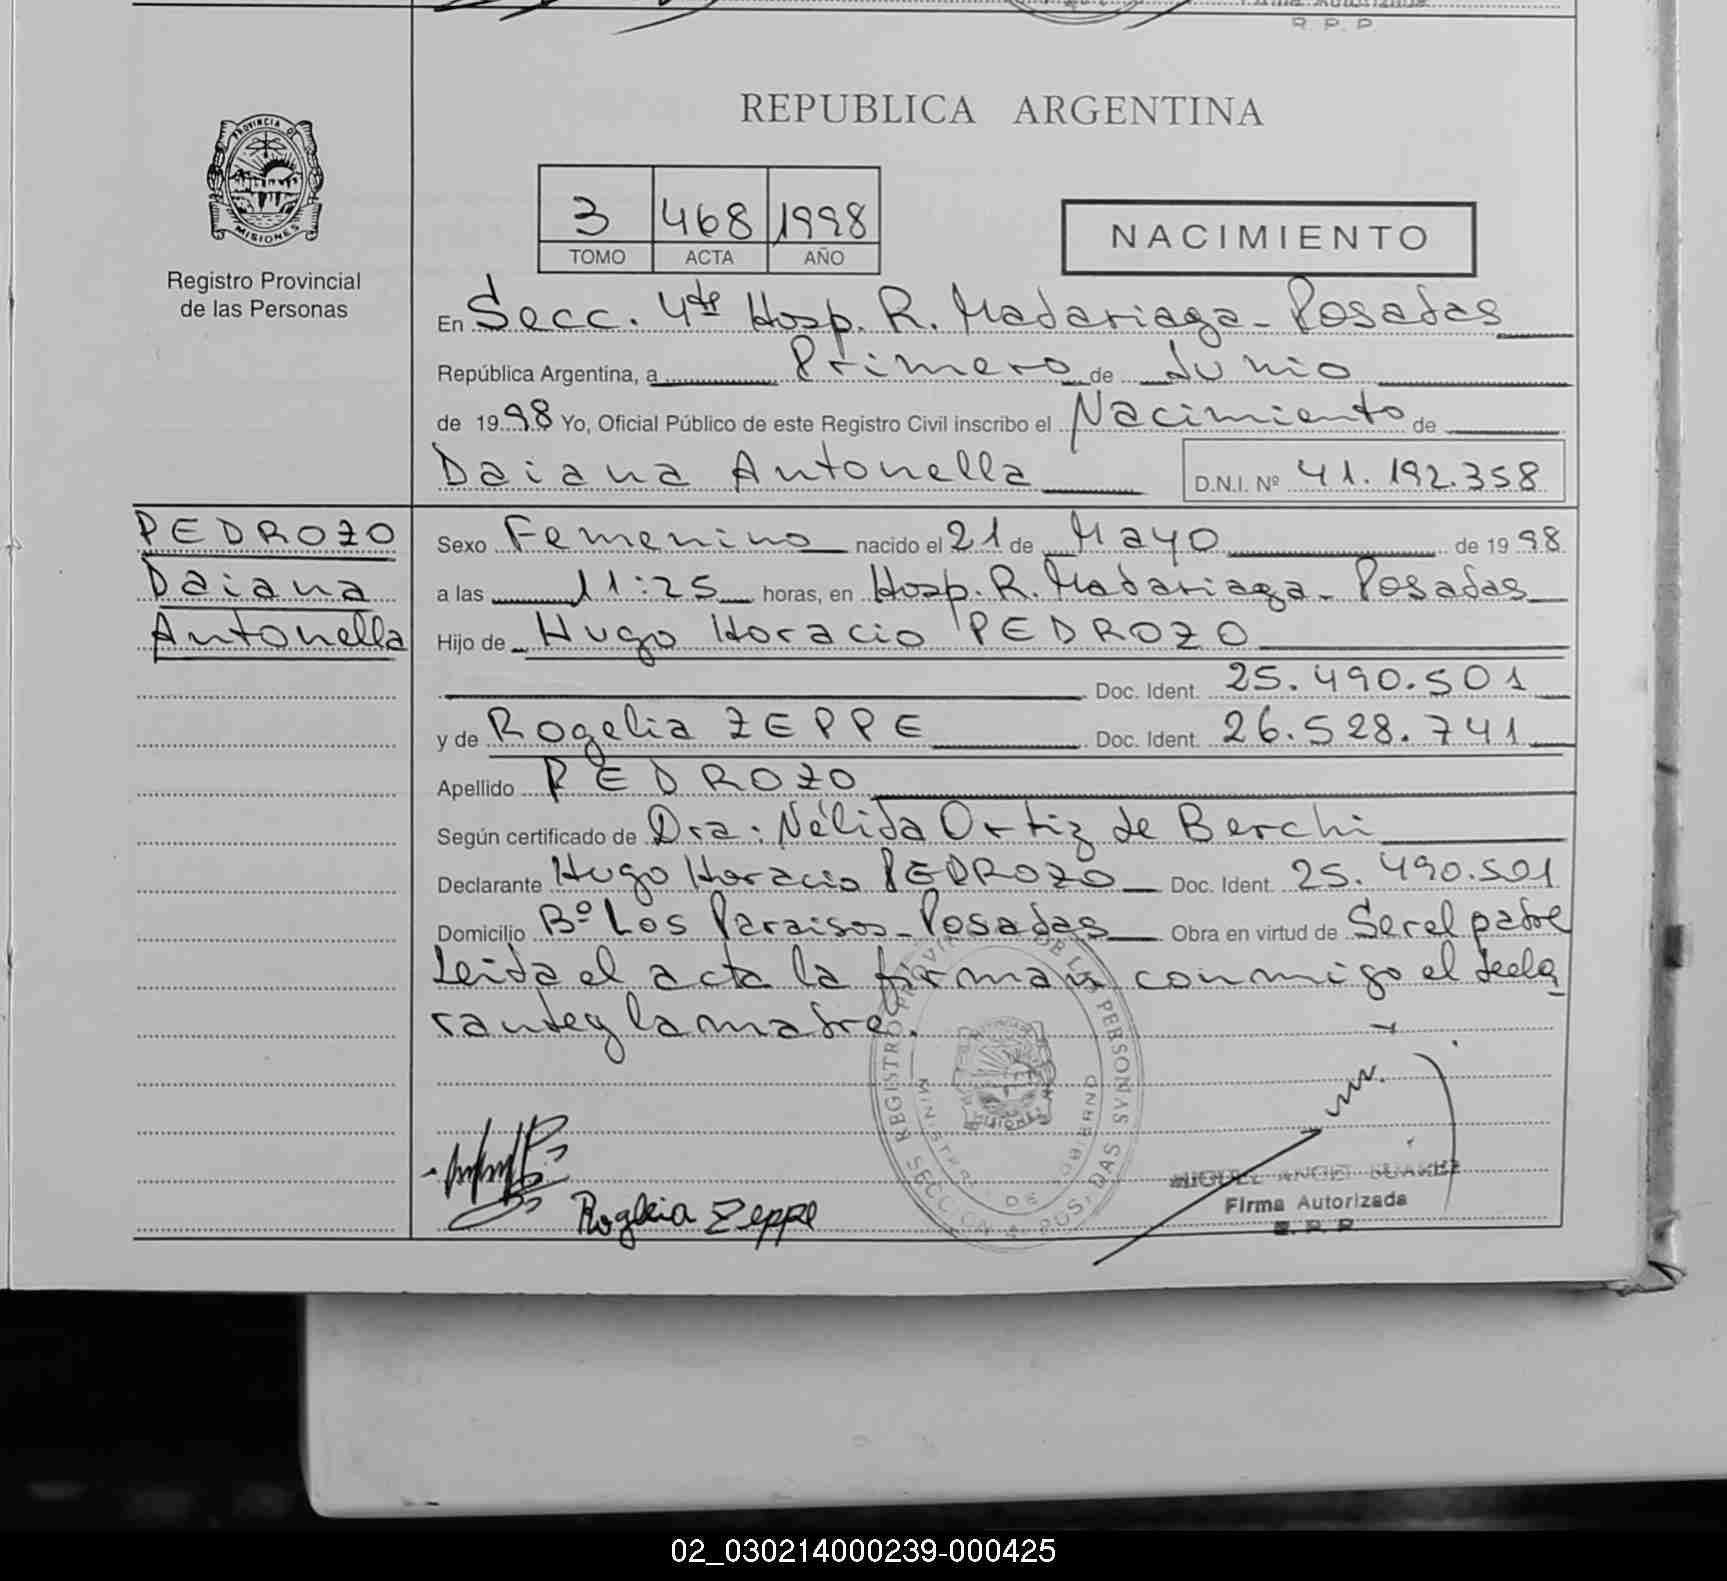 R. P. P.
PROVINCIA DE
MISIONES
Registro Provincial
de las Personas
REPUBLICA ARGENTINA
3 468 1998
TOMO ACTA AÑO
NACIMIENTO
En Secc. 4ta Hosp. R. Madariaga - Posadas
República Argentina, a Primero de Junio
de 1998 Yo, Oficial Público de este Registro Civil inscribo el Nacimiento de
Daiana Antonella D.N.I. Nº 41.192.358
PEDROZO
Daiana
Antonella
Sexo Femenino nacido el 21 de Mayo de 1998
a las 11:25 horas, en Hosp. R. Madariaga - Posadas
Hijo de Hugo Horacio PEDROZO
Doc. Ident. 25.490.501
y de Rogelia ZEPPE Doc. Ident. 26.528.741
Apellido PEDROZO
Según certificado de Dra: Nélida Ortiz de Berchi
Declarante Hugo Horacio PEDROZO Doc. Ident. 25.490.501
Domicilio Bº Los Paraisos - Posadas Obra en virtud de Ser el padre
Leida el acta la firman conmigo el decla
rante y la madre.
REGISTRO PROVINCIAL DE LAS PERSONAS
MINISTERIO DE GOBIERNO
SECCION 4 POSADAS
Rogleia Zeppe
MIGUEL ANGEL SUAREZ
Firma Autorizada
R. P. P.
02_030214000239-000425